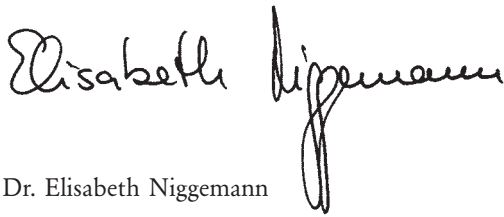 Elisabeth Niggemann
Dr. Elisabeth Niggemann